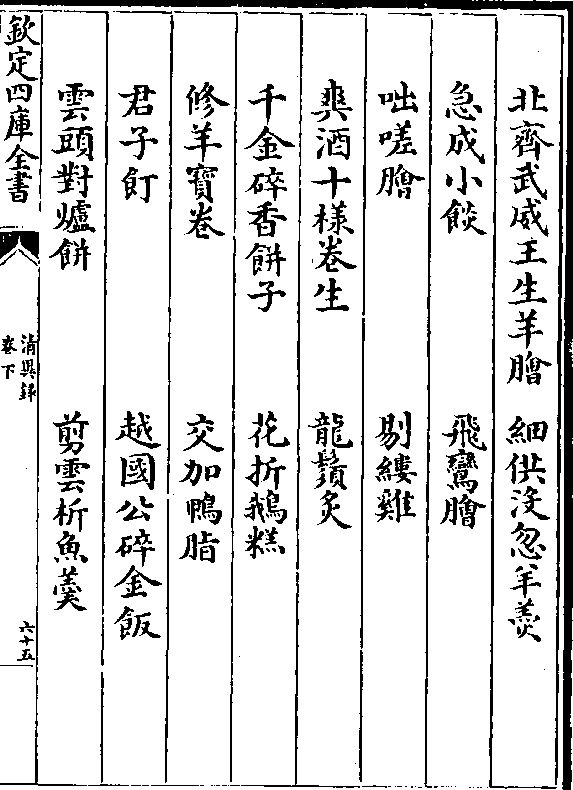 北齊武威王生羊膾　細供沒忽羊羹
急成小餤　飛鸞膾
咄嗟膾　剔縷雞
爽酒十樣卷生　龍鬚炙
千金碎香餅子　花折鵝糕
修羊寶卷　交加鴨脂
君子飣　越國公碎金飯
雲頭對爐餅　剪雲析魚羹
欽定四庫全書
清異錄
卷下
六十五